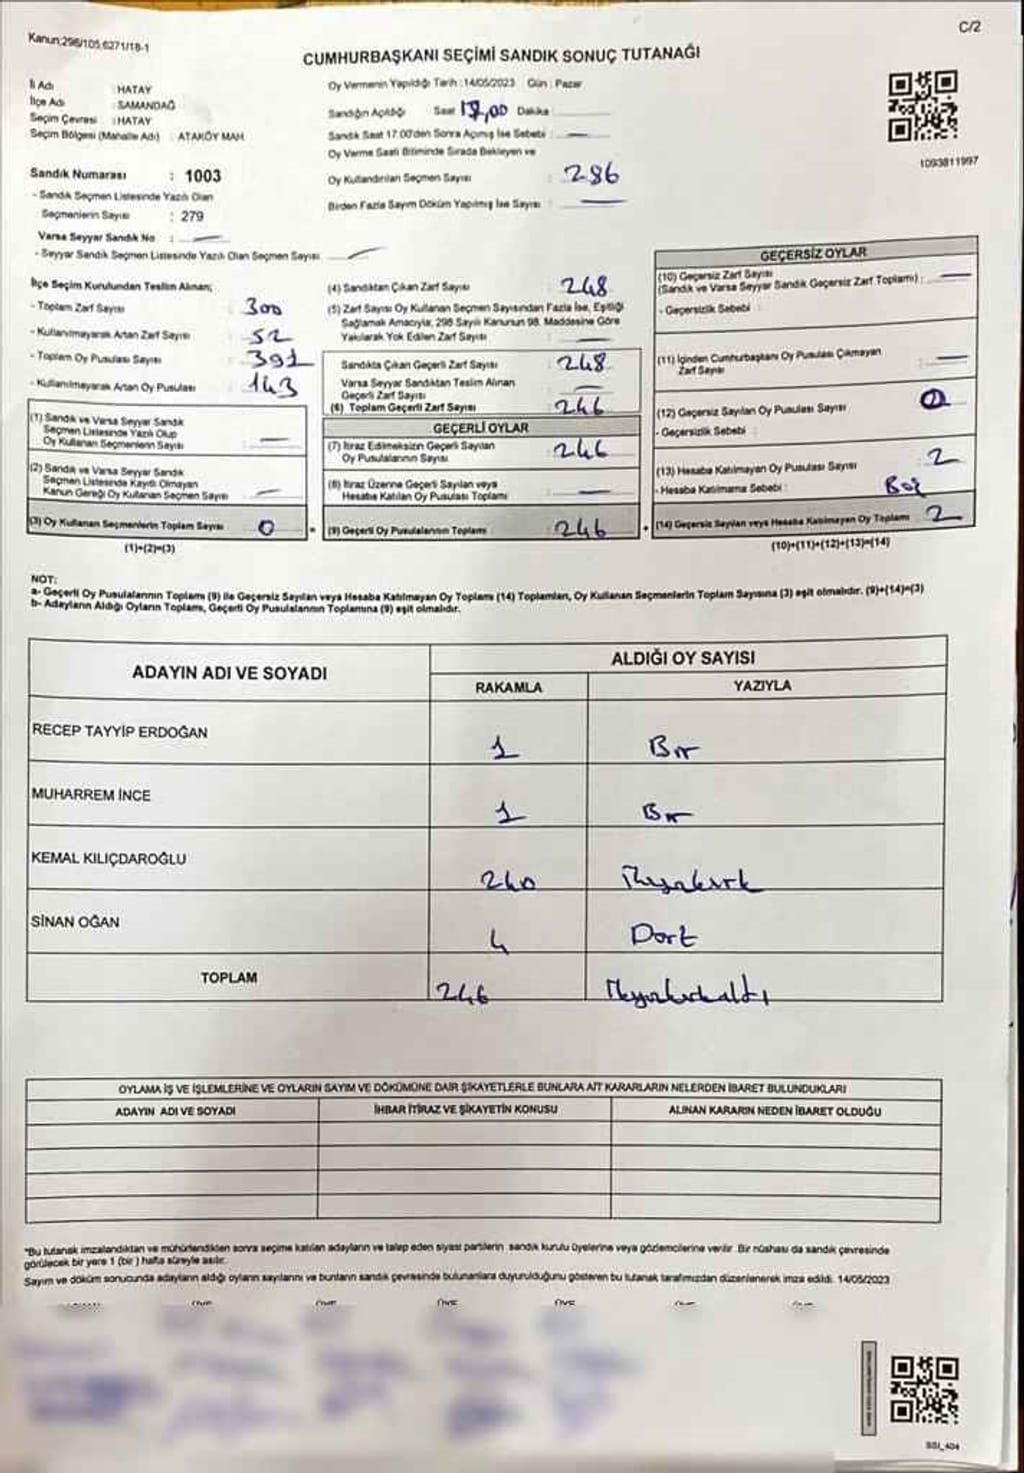 C/2
Kanun;298/105,6271/18-1
CUMHURBAŞKANI SEÇİMİ SANDIK SONUÇ TUTANAĞI
İl Adı : HATAY
İlçe Adı : SAMANDAĞ
Seçim Çevresi : HATAY
Seçim Bölgesi (Mahalle Adı) : ATAKÖY MAH.
Sandık Numarası : 1003
- Sandık Seçmen Listesinde Yazılı Olan
Seçmenlerin Sayısı : 279
Varsa Seyyar Sandık No : —
- Seyyar Sandık Seçmen Listesinde Yazılı Olan Seçmen Sayısı —
Oy Vermenin Yapıldığı Tarih :14/05/2023 Gün : Pazar
Sandığın Açıldığı Saat 17,00 Dakika
Sandık Saat 17:00'den Sonra Açılmış İse Sebebi : —
Oy Verme Saati Bitiminde Sırada Bekleyen ve
Oy Kullandırılan Seçmen Sayısı : 286
Birden Fazla Sayım Döküm Yapılmış İse Sayısı : —
1093811997
İlçe Seçim Kurulundan Teslim Alınan;
- Toplam Zarf Sayısı : 300
- Kullanılmayarak Artan Zarf Sayısı : 52
- Toplam Oy Pusulası Sayısı : 391
- Kullanılmayarak Artan Oy Pusulası : 143
(1) Sandık ve Varsa Seyyar Sandık
Seçmen Listesinde Yazılı Olup
Oy Kullanan Seçmenlerin Sayısı : —
(2) Sandık ve Varsa Seyyar Sandık
Seçmen Listesinde Kayıtlı Olmayan
Kanun Gereği Oy Kullanan Seçmen Sayısı : —
(3) Oy Kullanan Seçmenlerin Toplam Sayısı : 0
(1)+(2)=(3)
(4) Sandıktan Çıkan Zarf Sayısı : 248
(5) Zarf Sayısı Oy Kullanan Seçmen Sayısından Fazla İse, Eşitliği
Sağlamak Amacıyla, 298 Sayılı Kanunun 98. Maddesine Göre
Yakılarak Yok Edilen Zarf Sayısı : —
Sandıkta Çıkan Geçerli Zarf Sayısı : 248
Varsa Seyyar Sandıktan Teslim Alınan
Geçerli Zarf Sayısı : —
(6) Toplam Geçerli Zarf Sayısı : 246
GEÇERLİ OYLAR
(7) İtiraz Edilmeksizin Geçerli Sayılan
Oy Pusulalarının Sayısı : 246
(8) İtiraz Üzerine Geçerli Sayılan veya
Hesaba Katılan Oy Pusulası Toplamı : —
= (9) Geçerli Oy Pusulalarının Toplamı : 246
GEÇERSİZ OYLAR
(10) Geçersiz Zarf Sayısı
(Sandık ve Varsa Seyyar Sandık Geçersiz Zarf Toplamı) : —
- Geçersizlik Sebebi :
(11) İçinden Cumhurbaşkanı Oy Pusulası Çıkmayan
Zarf Sayısı : —
(12) Geçersiz Sayılan Oy Pusulası Sayısı :
- Geçersizlik Sebebi :
(13) Hesaba Katılmayan Oy Pusulası Sayısı : 2
- Hesaba Katılmama Sebebi : Boş
+ (14) Geçersiz Sayılan veya Hesaba Katılmayan Oy Toplamı : 2
(10)+(11)+(12)+(13)=(14)
NOT:
a- Geçerli Oy Pusulalarının Toplamı (9) ile Geçersiz Sayılan veya Hesaba Katılmayan Oy Toplamı (14) Toplamları, Oy Kullanan Seçmenlerin Toplam Sayısına (3) eşit olmalıdır. (9)+(14)=(3)
b- Adayların Aldığı Oyların Toplamı, Geçerli Oy Pusulalarının Toplamına (9) eşit olmalıdır.
ADAYIN ADI VE SOYADI
ALDIĞI OY SAYISI
RAKAMLA YAZIYLA
RECEP TAYYİP ERDOĞAN 1 Bir
MUHARREM İNCE 1 Bir
KEMAL KILIÇDAROĞLU 240 İkiyüzkırk
SİNAN OĞAN 4 Dört
TOPLAM 246 İkiyüzkırkaltı
OYLAMA İŞ VE İŞLEMLERİNE VE OYLARIN SAYIM VE DÖKÜMÜNE DAİR ŞİKAYETLERLE BUNLARA AİT KARARLARIN NELERDEN İBARET BULUNDUKLARI
ADAYIN ADI VE SOYADI İHBAR İTİRAZ VE ŞİKAYETİN KONUSU ALINAN KARARIN NEDEN İBARET OLDUĞU
*Bu tutanak imzalandıktan ve mühürlendikten sonra seçime katılan adayların ve talep eden siyasi partilerin sandık kurulu üyelerine veya gözlemcilerine verilir. Bir nüshası da sandık çevresinde
görülecek bir yere 1 (bir) hafta süreyle asılır.
Sayım ve döküm sonucunda adayların aldığı oyların sayılarını ve bunların sandık çevresinde bulunanlara duyurulduğunu gösteren bu tutanak tarafımızdan düzenlenerek imza edildi. 14/05/2023
SSI_404